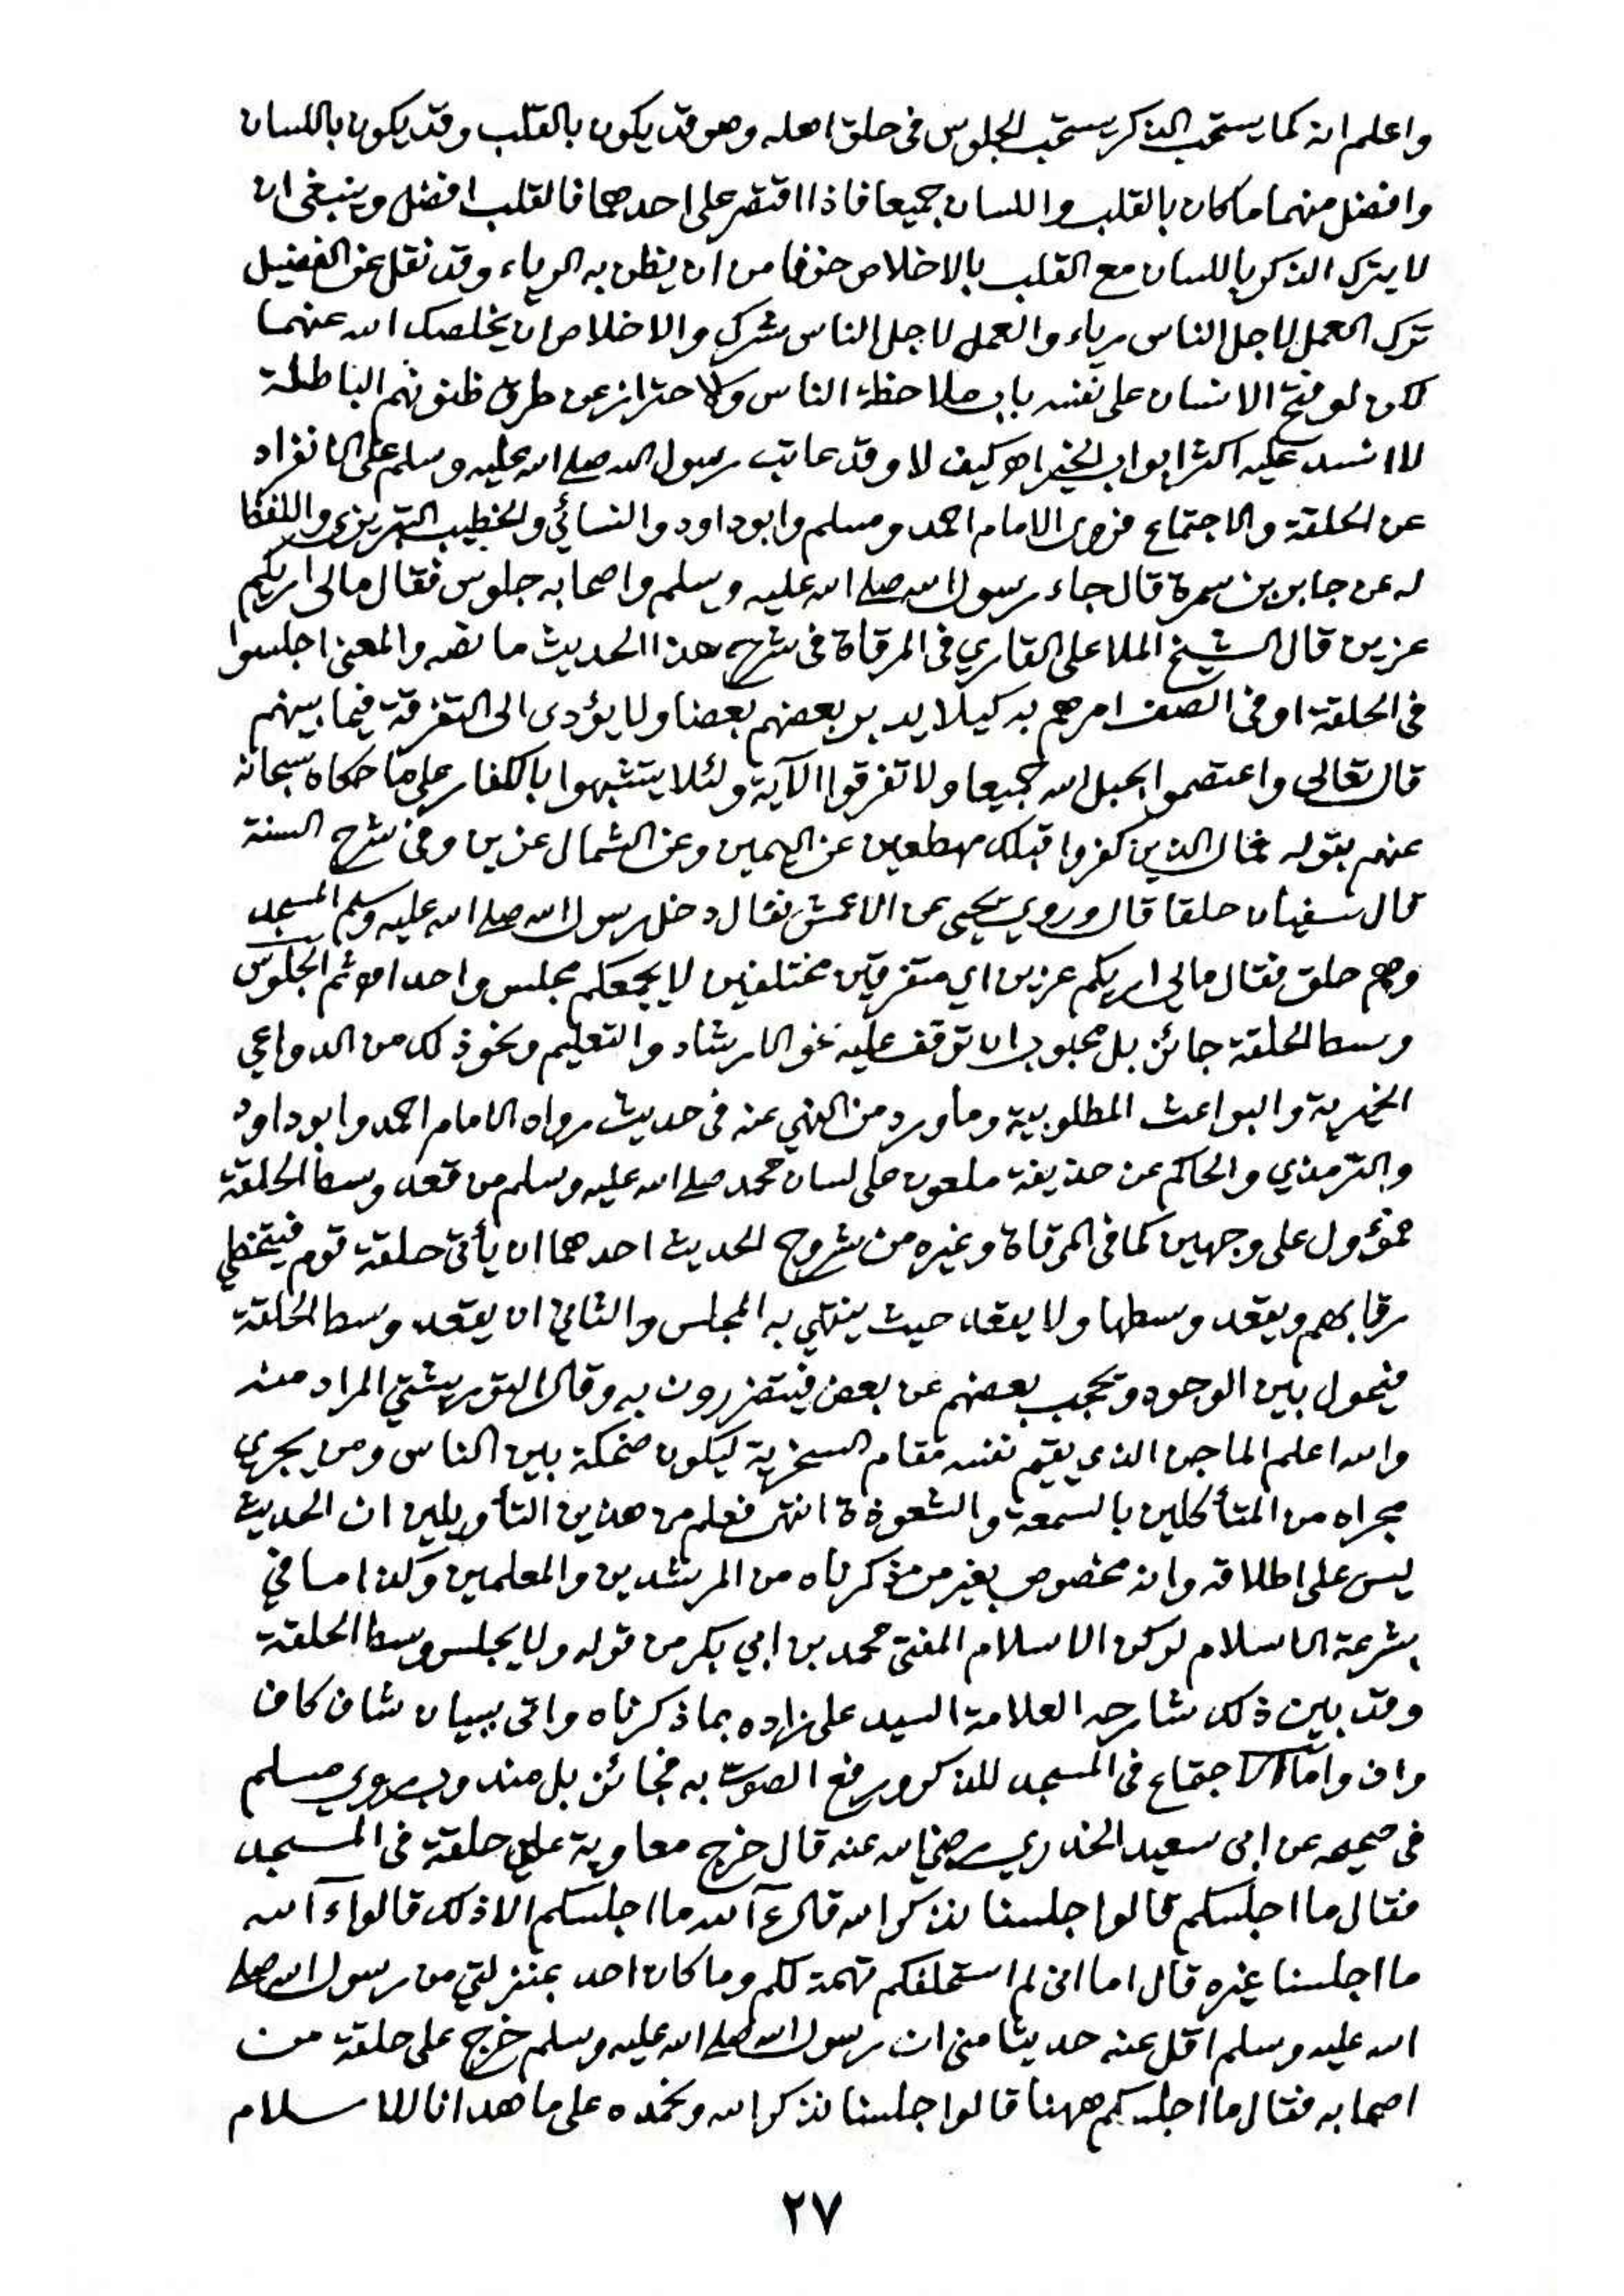 واعلم انه كما يستحب الذكر يستحب الجلوس فى حلق اهله وهو قد يكون بالقلب وقد يكون باللسان
وافضل منهما ما كان بالقلب واللسان جميعا فاذا اقتصر على احدهما فالقلب افضل وينبغى ان
لا يترك الذكر باللسان مع القلب بالاخلاص خوفا من ان يظن به الرياء وقد نقل عن الفضيل
ترك العمل لاجل الناس رياء والعمل لاجل الناس شرك والاخلاص ان يخلصك الله عنهما
لكن لو فتح الانسان على نفسه باب ملاحظة الناس والاحتراز عن طرق ظنونهم الباطلة
لا انسد عليه اكثر ابواب الخير اهـ كيف لا وقد عاتب رسول الله صلى الله عليه وسلم على الانفراد
عن الحلقة والاجتماع فروى الامام احمد ومسلم وابو داود والنسائي والخطيب التبريزى واللفظ
له عن جابر بن سمرة قال جاء رسول الله صلى الله عليه وسلم واصحابه جلوس فقال مالى اريكم
عزين قال الشيخ الملا على القاري فى المرقاة فى شرح هذا الحديث ما نصه والمعنى اجلسوا
فى الحلقة او فى الصف امرهم به كيلا يدبر بعضهم بعضا ولا يؤدى الى التفرقة فيما بينهم
قال تعالى واعتصموا بحبل الله جميعا ولا تفرقوا الآية ولئلا يتشبهوا بالكفار على ما حكاه سبحانه
عنهم بقوله فمال الذين كفروا قبلك مهطعين عن اليمين وعن الشمال عزين وفى شرح السنة
قال سفيان حلقا قال وروي يحيى عن الاعمش فقال دخل رسول الله صلى الله عليه وسلم المسجد
وهم حلق فقال مالى اريكم عزين اي متفرقين مختلفين لا يجمعكم مجلس واحد اهـ ثم الجلوس
وسط الحلقة جائز بل محبوب ان توقف عليه نحو الارشاد والتعليم ونحو ذلك من الدواعي
الخيرية والبواعث المطلوبية وما ورد من النهي عنه فى حديث رواه الامام احمد وابو داود
والترمذي والحاكم عن حذيفة ملعون على لسان محمد صلى الله عليه وسلم من قعد وسط الحلقة
مؤول على وجهين كما فى المرقاة وغيره من شروح الحديث احدهما ان يأتى حلقة قوم فيتخطى
رقابهم ويقعد وسطها ولا يقعد حيث ينتهي به المجلس والثاني ان يقعد وسط الحلقة
فيحول بين الوجوه ويحجب بعضهم عن بعض فيتضررون به وقال التوربشتي المراد منه
والله اعلم الماجن الذي يقيم نفسه مقام السخرية ليكون ضحكة بين الناس ومن يجري
مجراه من المتأكلين بالسمعة والشعوذة انتهى فعلم من هذين التأويلين ان الحديث
ليس على اطلاقه وانه مخصوص بغير من ذكرناه من المرشدين والمعلمين وكذا ما في
شرعة الاسلام لركن الاسلام المفتى محمد بن ابي بكر من قوله ولا يجلس وسط الحلقة
وقد بين ذلك شارحه العلامة السيد على زاده بما ذكرناه واتى ببيان شاف كاف
واف واما الاجتماع فى المسجد للذكر ورفع الصوت به فجائز بل مندوب روي مسلم
فى صحيحه عن ابى سعيد الخدري رضي الله عنه قال خرج معاوية على حلقة فى المسجد
فقال ما اجلسكم قالوا جلسنا نذكر الله قال ءآلله ما اجلسكم الا ذلك قالوا ءآلله
ما اجلسنا غيره قال اما انى لم استحلفكم تهمة لكم وما كان احد بمنزلتي من رسول الله صلى
الله عليه وسلم اقل عنه حديثا منى ان رسول الله صلى الله عليه وسلم خرج على حلقة من
اصحابه فقال ما اجلسكم ههنا قالوا جلسنا نذكر الله ونحمده على ما هدانا للاسلام
٢٧